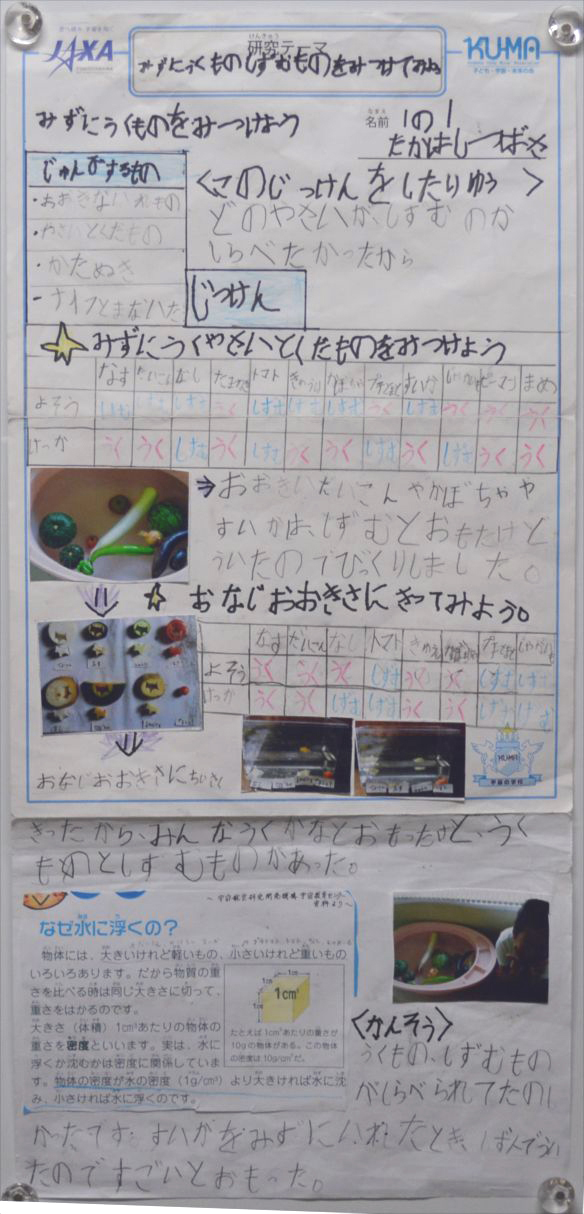 JAXA
研究テーマ
みずにうくものしずむものをみつけてみね
KUMA
子ども・宇宙・未来の会
みずにうくものをみつけよう
名前 1の1
たかはしつばさ
じゅんびするもの
・おおきないれもの
・やさいとくだもの
・かたぬき
・ナイフとまないた
〈このじっけんをしたりゆう〉
どのやさいが、しずむのか
しらべたかったから
じっけん
みずにうくやさいとくだものをみつけよう
なす だいこん なし たまねぎ トマト きゅうり かぼちゃ すいか ピーマン まめ
よそう
けっか うく うく しずむ うく しずむ うく うく しずむ うく しずむ うく うく
⇒おおきいだいこんやかぼちゃや
すいかは、しずむとおもたけど
ういたのでびっくりしました。
☆ おなじおおきさにきってみよう。
なす だいこん なし トマト
よそう うく うく うく しずむ うく うく しずむ しずむ
けっか うく うく しずむ しずむ うく うく しずむ しずむ
KUMA
宇宙の学校
おなじおおきさにちいさく
きったから、みんなうくかなとおもったけど、うく
ものとしずむものがあった。
なぜ水に浮くの？
物体には、大きいけれど軽いもの、小さいけれど重いもの
いろいろあります。だから物質の重
さを比べる時は同じ大きさに切って、
重さをはかるのです。
大きさ（体積）1cm³あたりの物体の
重さを密度といいます。実は、水に
浮くか沈むかは密度に関係していま
す。物体の密度が水の密度（1g/cm³）より大きければ水に沈
み、小さければ水に浮くのです。
1cm
1cm
1cm³
たとえば1cm³あたりの重さが
10gの物体がある。この物体
の密度は10g/cm³だ。
〈かんそう〉
うくもの、しずむもの
がしらべられてたのし
かったです。すいかをみずにいれたとき、
たのですごいとおもった。